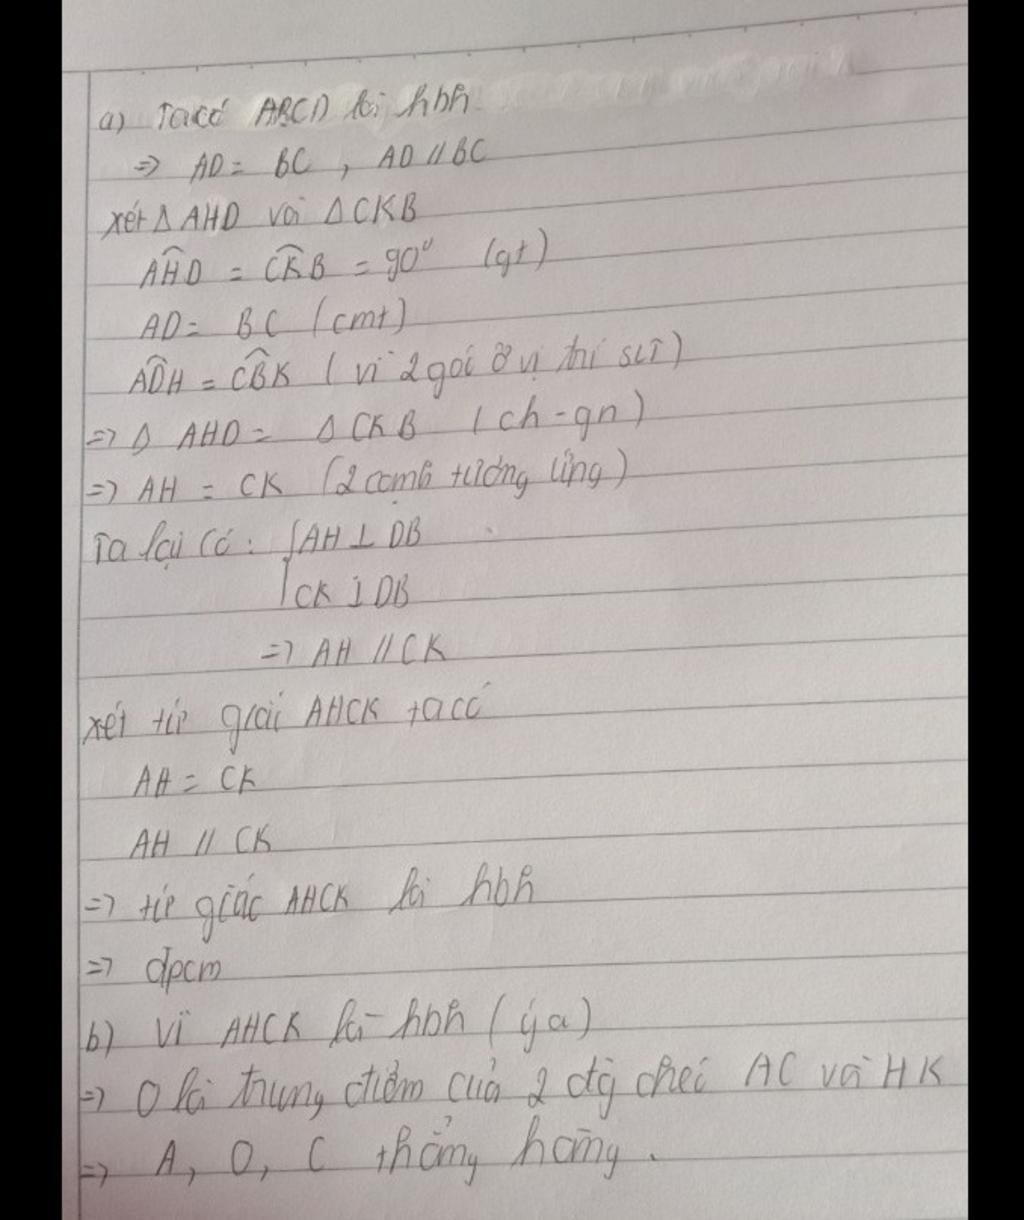 a) Ta có ABCD là hbh
=> AD = BC , AD // BC
xét Δ AHD và Δ CKB
AĤD = CK̂B = 90° (gt)
AD = BC (cmt)
AD̂H = CB̂K ( vì 2 góc ở vị trí SLT )
=> Δ AHD = Δ CKB ( ch - gn )
=> AH = CK (2 cạnh tương ứng)
Ta lại có : { AH ⊥ DB
CK ⊥ DB
=> AH // CK
xét tứ giác AHCK ta có
AH = CK
AH // CK
=> tứ giác AHCK là hbh
=> đpcm
b) Vì AHCK là hbh ( ý a )
=> O là trung điểm của 2 đg chéo AC và HK
=> A, O, C thẳng hàng .